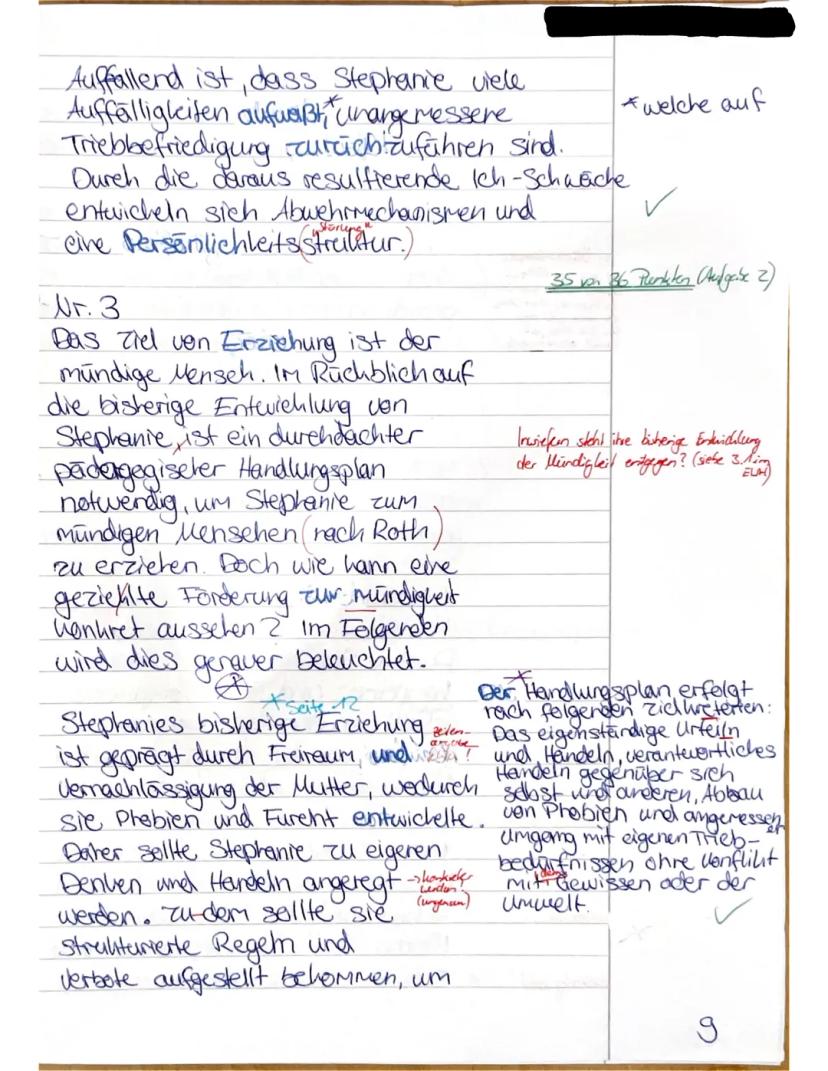 Auffallend ist, dass Stephanie viele
Auffälligkeiten aufweißt,* unangemessene
* welche auf
Triebbefriedigung zurückzuführen sind.
Durch die daraus resultierende Ich-Schwäche
entwickeln sich Abwehrmechanismen und ✓
"störung"
eine Persönlichkeits(struktur.)
35 von 36 Punkten (Aufgabe 2)
Nr. 3
Das Ziel von Erziehung ist der
mündige Mensch. Im Rückblick auf
die bisherige Entwicklung von
Stephanie, ist ein durchdachter
pädagogischer Handlungsplan
notwendig, um Stephanie zum
mündigen Menschen (nach Roth)
zu erziehen. Doch wie kann eine
geziehlte Förderung zur mündigkeit
konkret aussehen? Im Folgenden
wird dies genauer beleuchtet.
Inwiefern steht ihre bisherige Entwicklung
der Mündigkeit entgegen? (siehe 3.1 im
EWH)
* Seite 12
Stephanies bisherige Erziehung
ist geprägt durch Freiraum, und
Zeilen-
angabe
!
Vernachlässigung der Mutter, wodurch
sie Phobien und Furcht entwickelte.
Daher sollte Stephanie zu eigenen
Denken und Handeln angeregt
→ konkreter
werden!
(ungenau)
werden. Zu dem sollte sie
strukturierte Regeln und
Verbote aufgestellt bekommen, um
*
Der Handlungsplan erfolgt
nach folgenden Zielwerten:
Das eigenständige Urteiln
und Handeln, verantwortliches
Handeln gegenüber sich
selbst und anderen, Abbau
von Phobien und angemessen
er
Umgang mit eigenen Trieb-
bedürfnissen ohne Konflikt
mit dem Gewissen oder der
Umwelt. ✓
9